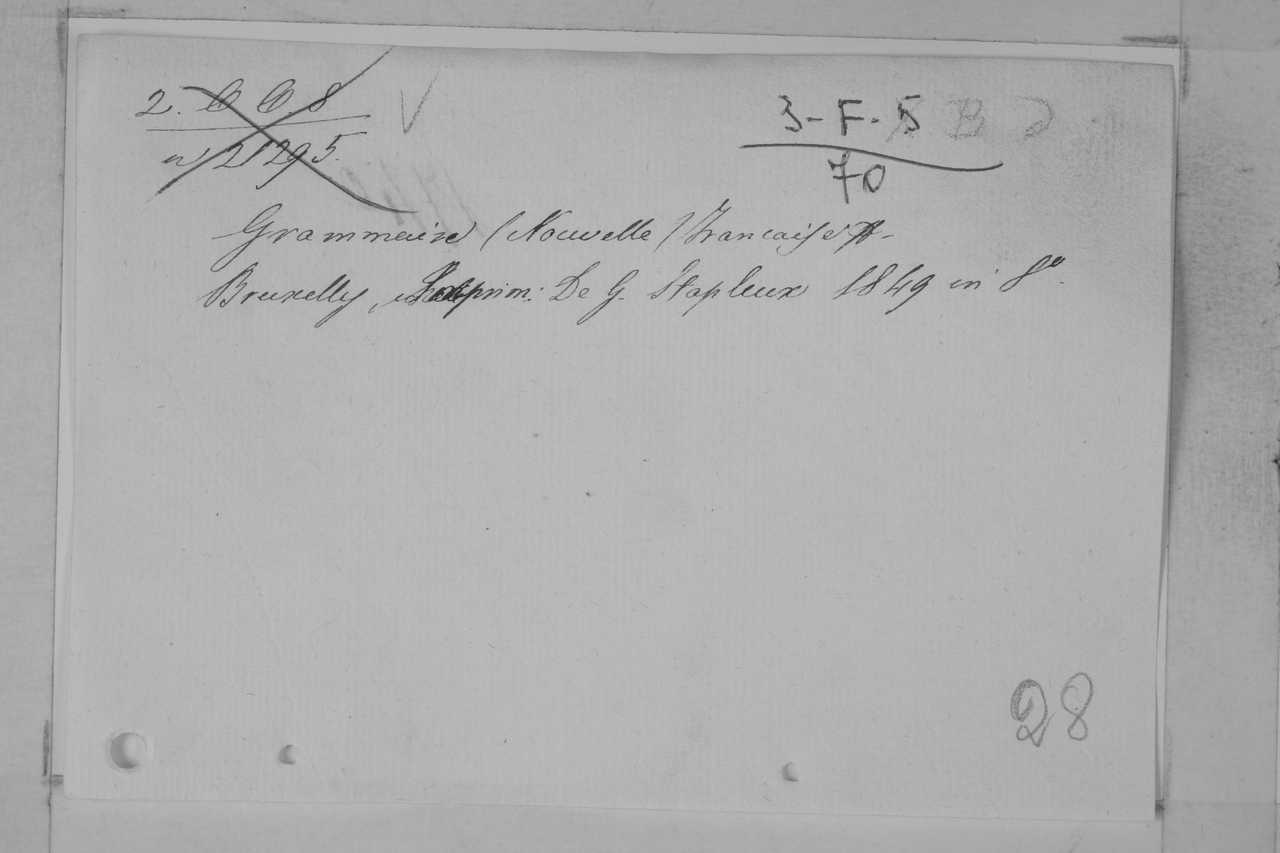 2. B B. 8
n) 21295.
3-F-5 B
70
Grammaire (Nouvelle) Française -
Bruxelles, imprim: De G. Stapleux 1849 in 8°.
28